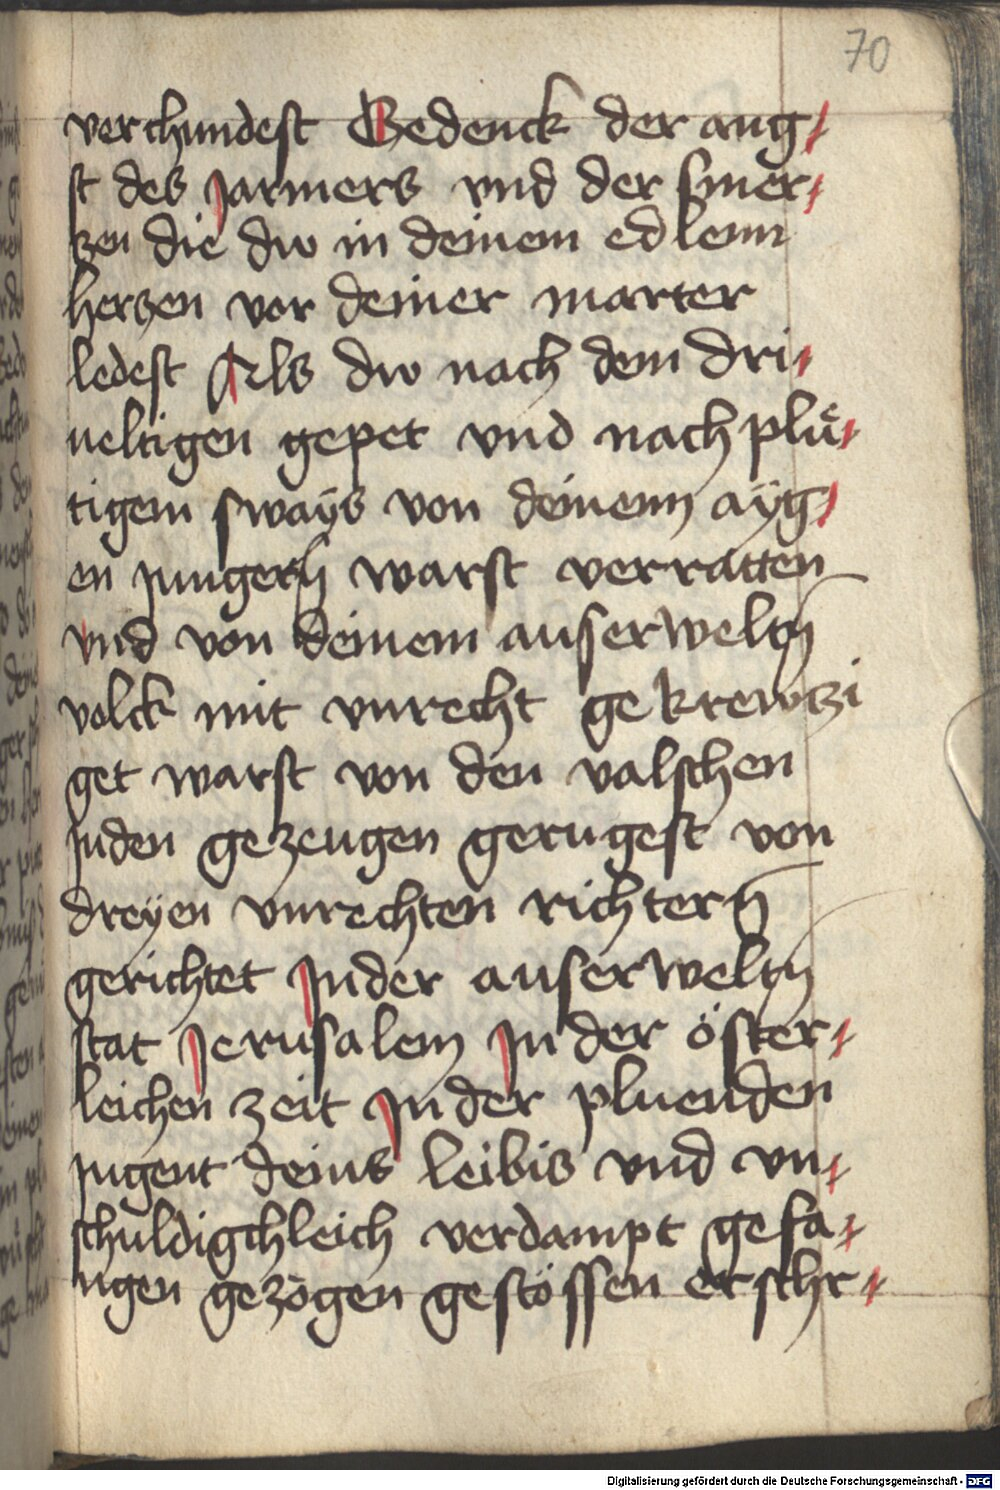 70
verchundest Gedenck der ang-
st des jarmers vnd der smer-
tzen die dw in deinem edlenn
hertzen vor deiner marter
ledest Als dw nach dem dri-
ueltigen gepet vnd nach plůe-
tigem sways von deinenn ayg-
en jungern warst verratten
vnd von deinem auserweltn
volck mit vnrecht gekrewtzi
get warst von den valschen
juden gezeugen gerugest von
dreyen vnrechten richtern
gerichtet Inder auserweltn
stat Jerusalem In der öster-
leichen zeit In der pluenden
jugent deins leibis vnd vn-
schuldigchleich verdampt gefa-
ngen gezogen gestössen erschr-
Digitalisierung gefördert durch die Deutsche Forschungsgemeinschaft - DFG